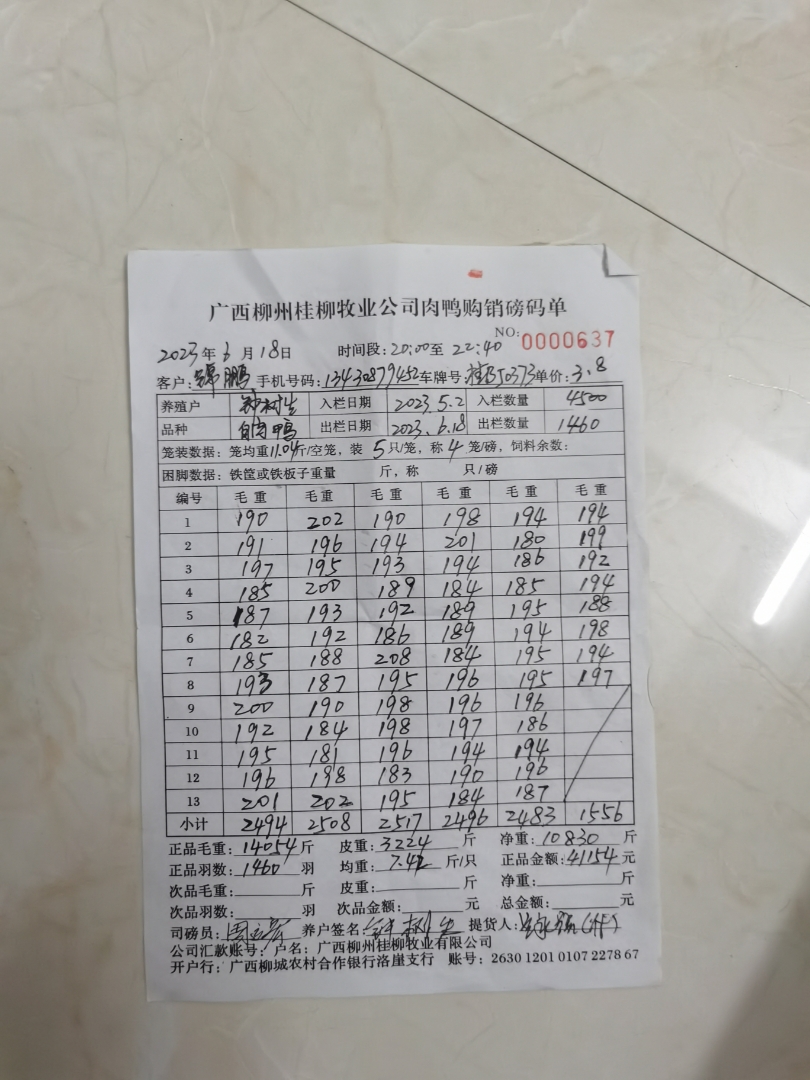 广西柳州桂柳牧业公司肉鸭购销磅码单
NO: 0000637
2023年6月18日 时间段:20:00至22:40
客户:锦鹏 手机号码:13430879452 车牌号:桂BJ0373 单价:3.8
养殖户 钟树生 入栏日期 2023.5.2 入栏数量 4500
品种 白肉鸭 出栏日期 2023.6.18 出栏数量 1460
笼装数据: 笼均重11.04斤/空笼,装5只/笼,称4笼/磅,饲料余数:
困脚数据: 铁筐或铁板子重量 斤,称 只/磅
编号 毛重 毛重 毛重 毛重 毛重 毛重
1 190 202 190 198 194 194
2 191 196 194 201 180 199
3 197 195 193 194 186 192
4 185 200 189 184 185 194
5 187 193 192 189 195 188
6 182 192 186 189 194 198
7 185 188 208 184 195 194
8 193 187 195 196 195 197
9 200 190 198 196 196
10 192 184 198 197 186
11 195 181 196 194 194
12 196 198 183 190 196
13 201 202 195 184 187
小计 2494 2508 2517 2496 2483 1556
正品毛重:14054斤 皮重:3224斤 净重:10830斤
正品羽数:1460羽 均重:7.42斤/只 正品金额:41154元
次品毛重: 斤 皮重: 斤 净重: 斤
次品羽数: 羽 次品金额: 元 总金额: 元
司磅员: 养户签名:钟树生 提货人:
公司汇款账号:户名:广西柳州桂柳牧业有限公司
开户行:广西柳城农村合作银行洛崖支行 账号:2630 1201 0107 2278 67